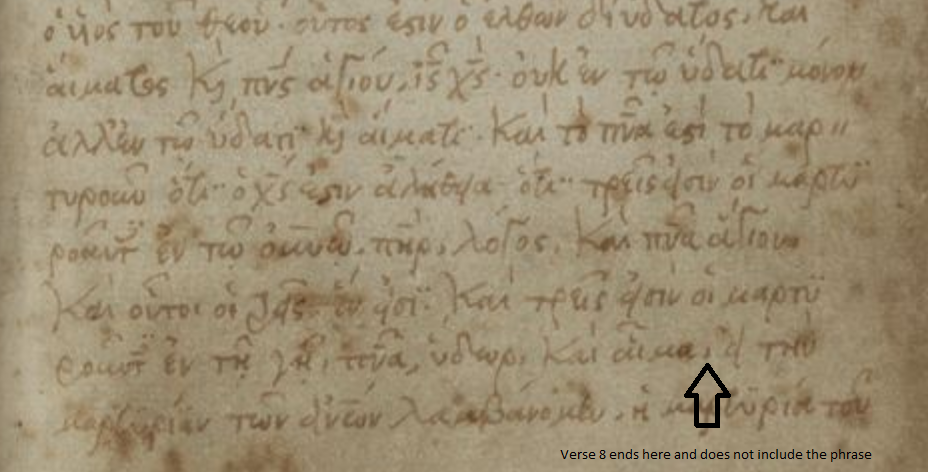 ὁ ὑιὸς τοῦ θεοῦ· οὗτος ἐϛιν ὁ ἐλθὼν δι ὕδατος, καὶ
αἵματος ϗ πν̅ς ἁγίου, ις̅ χς̅· οὐκ ἐν τῷ ὕδατι μόνον
ἀλλ ἐν τῷ ὕδατι ϗ αἵματι· Καὶ τὸ πν̅α ἐϛὶ τὸ μαρ〃
τυροῦν ὅτι ὁ χς̅ ἐϛιν ἀλήθεια· ὅτι τρεῖς εἰσιν οἱ μαρτυ
ροῦντ̅ ἐν τῷ οὐν̅ῷ, πη̅ρ, λόγος, Καὶ πν̅α ἅγιον,
Καὶ οὗτοι οἱ τρεῖς ἕν εἰσι· Καὶ τρεῖς εἰσιν οἱ μαρτυ
ροῦντ̅ ἐν τῇ γῇ, πν̅α, ὕδωρ, Καὶ αἷμα, εἰ τὴν
μαρτυρίαν τῶν ἀν̅ων λαμβάνομεν, ἡ μαρτυρία τοῦ
Verse 8 ends here and does not include the phrase